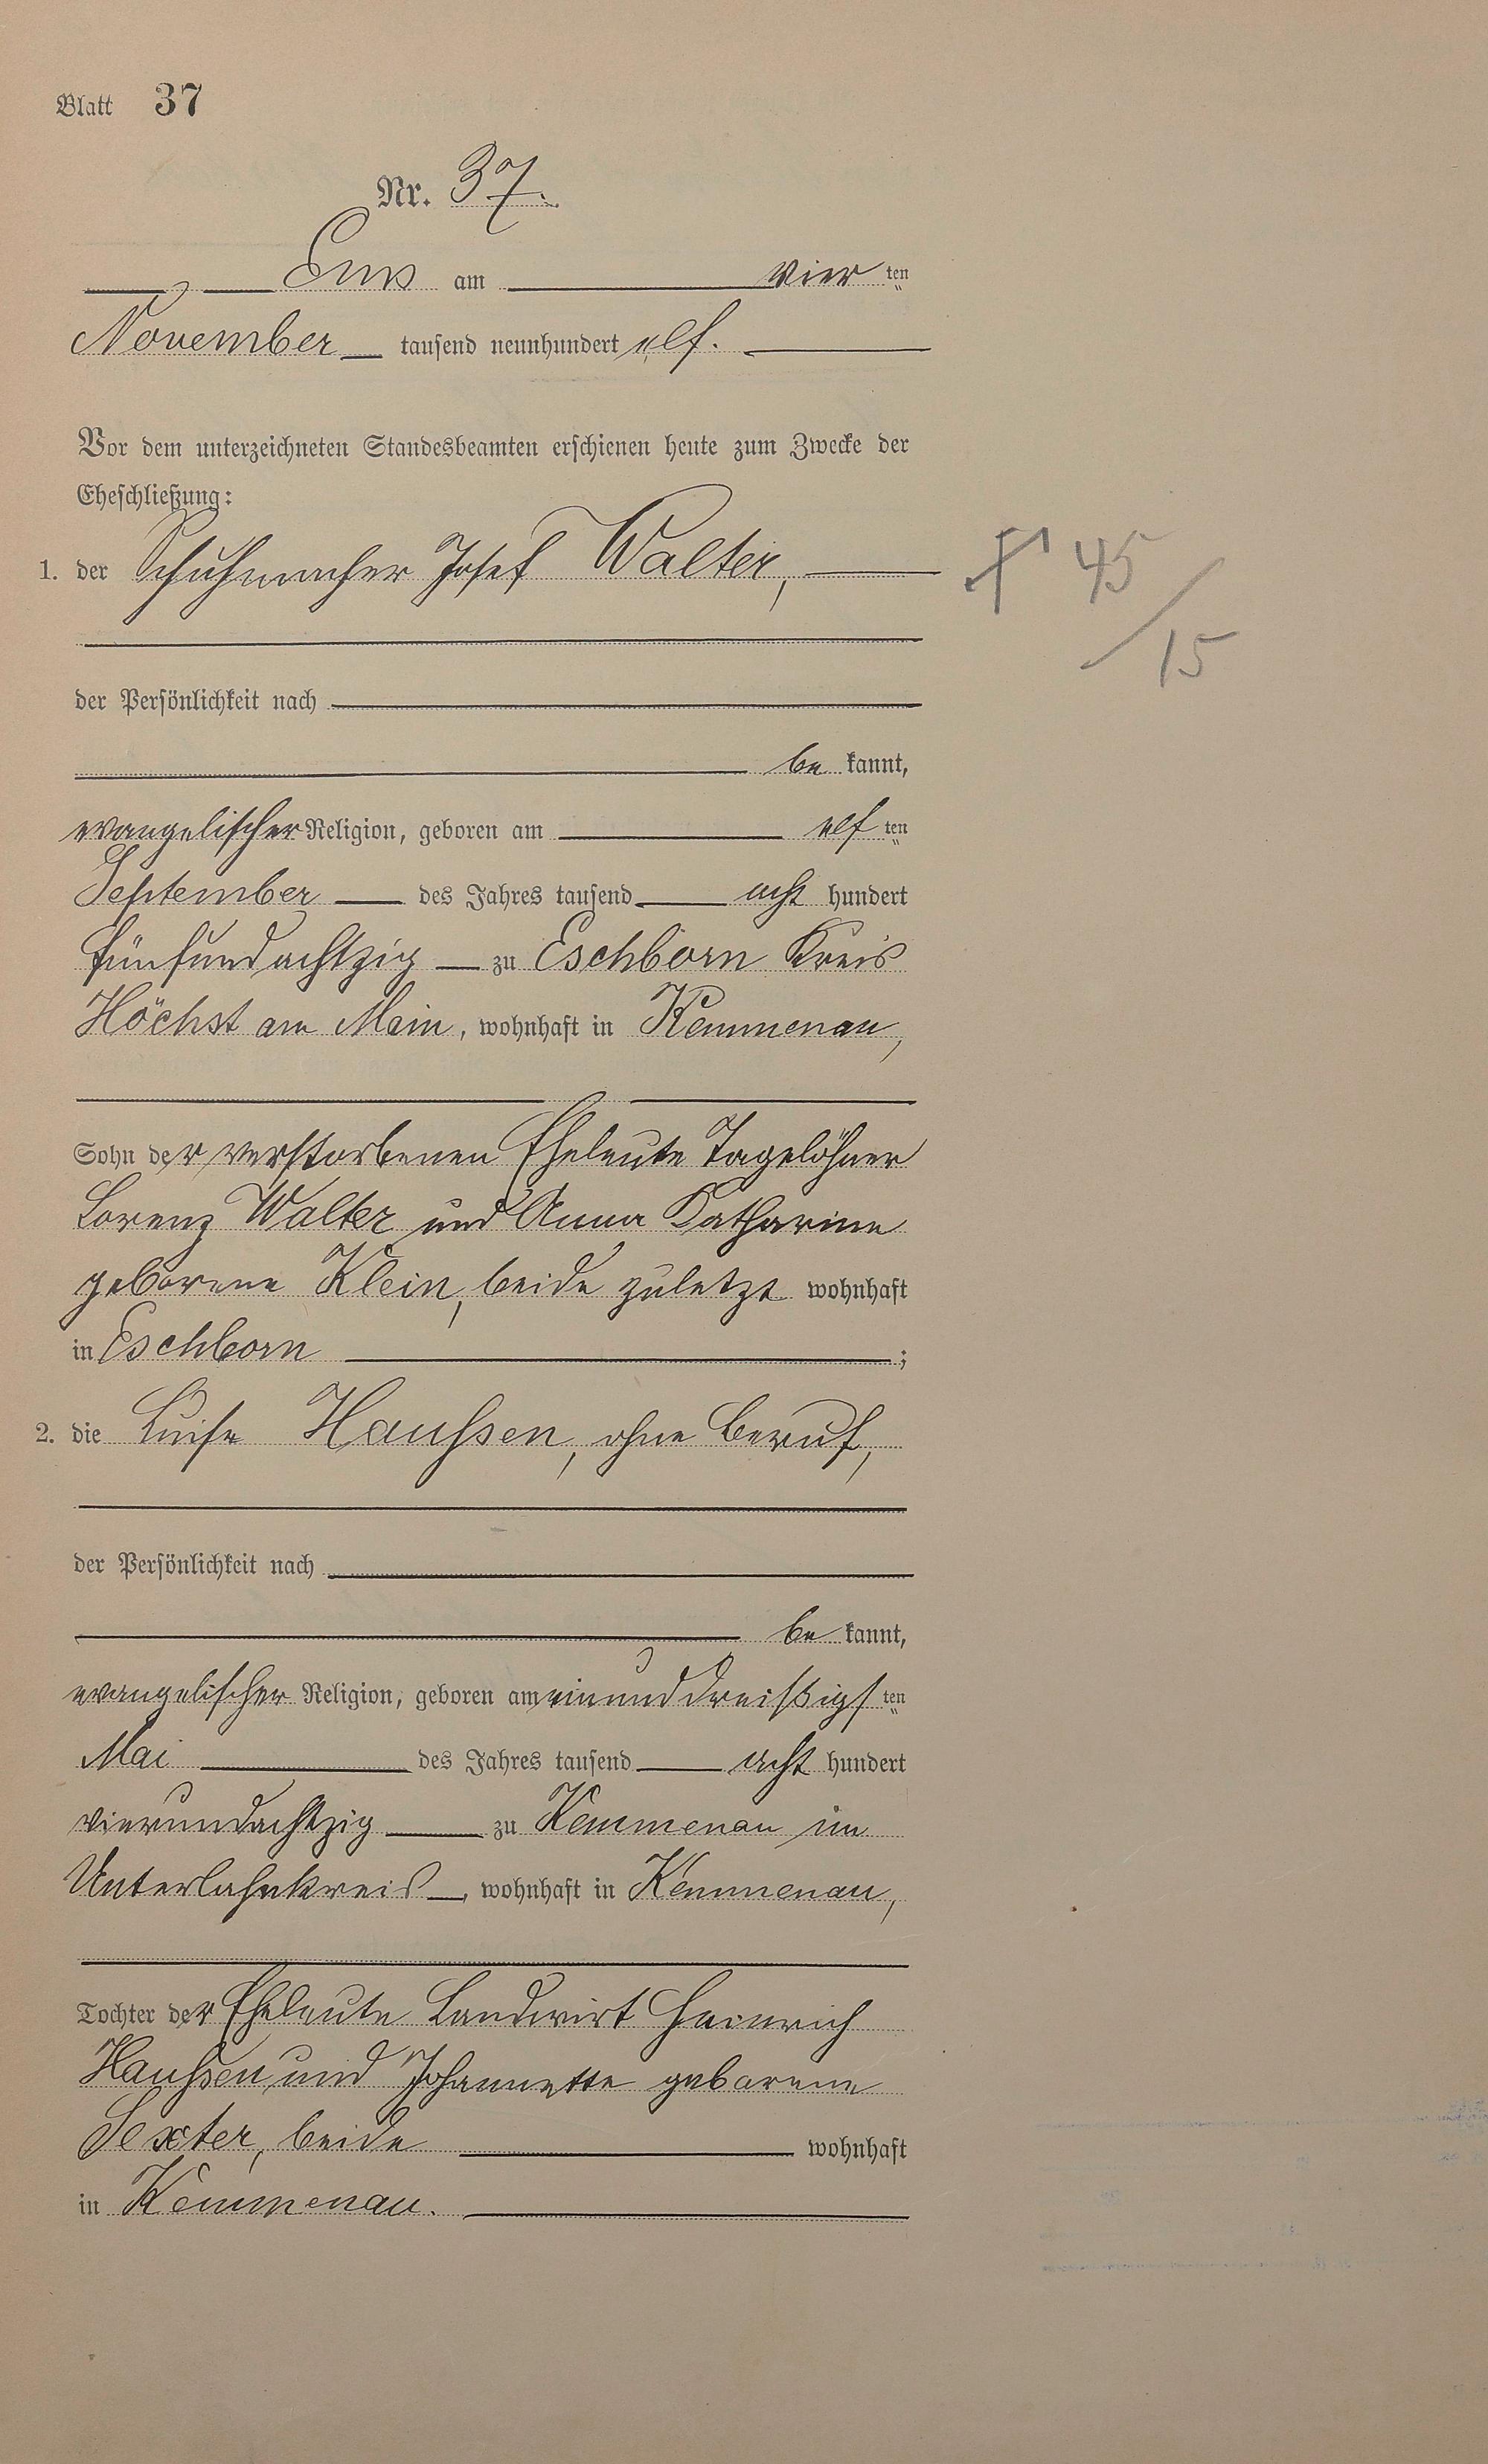 Blatt 37
Nr. 37.
Ems am vier ten
November tausend neunhundert elf.
Vor dem unterzeichneten Standesbeamten erschienen heute zum Zwecke der
Eheschließung:
1. der Schuhmacher Josef Walter,
† 45/15
der Persönlichkeit nach
be kannt,
evangelischer Religion, geboren am elf ten
September des Jahres tausend acht hundert
fünfundachtzig zu Eschborn Kreis
Höchst am Main, wohnhaft in Kemmenau,
Sohn der verstorbenen Eheleute Tagelöhner
Lorenz Walter und Anna Katharina
geborene Klein, beide zuletzt wohnhaft
in Eschborn ;
2. die Luise Haußsen, ohne Beruf,
der Persönlichkeit nach
be kannt,
evangelischer Religion, geboren am einunddreißigs ten
Mai des Jahres tausend acht hundert
vierundachtzig zu Kemmenau im
Unterlahnkreis, wohnhaft in Kemmenau,
Tochter der Eheleute Landwirt Heinrich
Haußsen und Johannette geborene
Sexter, beide wohnhaft
in Kemmenau.